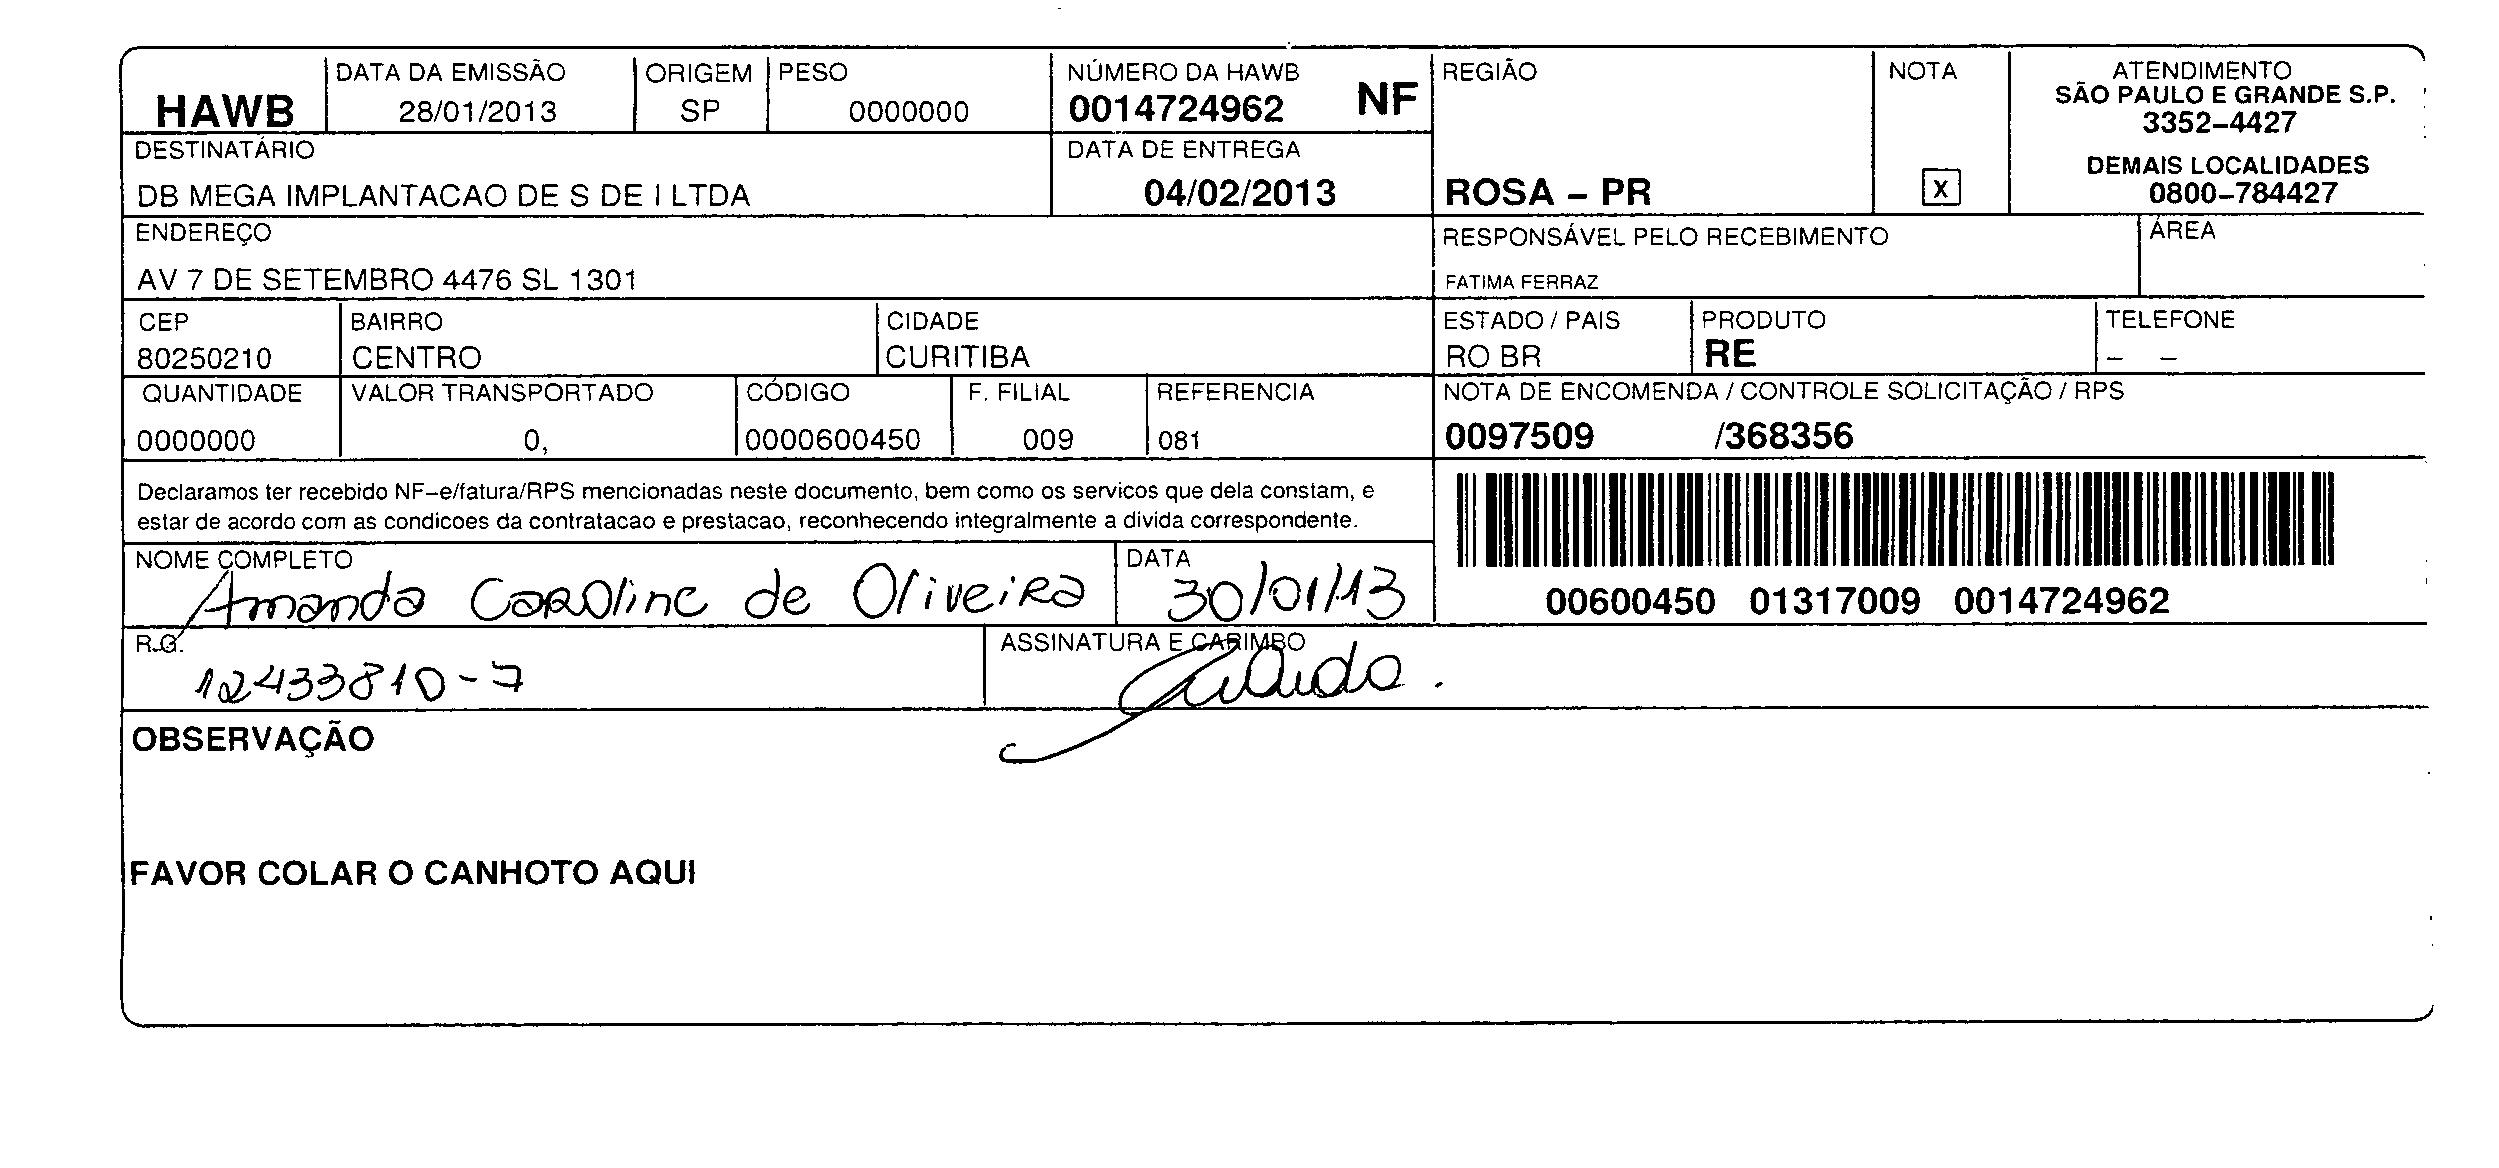 HAWB
DATA DA EMISSÃO
28/01/2013
ORIGEM
SP
PESO
0000000
NÚMERO DA HAWB
0014724962 NF
REGIÃO
ROSA – PR
NOTA
X
ATENDIMENTO
SÃO PAULO E GRANDE S.P.
3352–4427
DEMAIS LOCALIDADES
0800–784427
DESTINATÁRIO
DB MEGA IMPLANTACAO DE S DE I LTDA
DATA DE ENTREGA
04/02/2013
ENDEREÇO
AV 7 DE SETEMBRO 4476 SL 1301
RESPONSÁVEL PELO RECEBIMENTO
FATIMA FERRAZ
ÁREA
CEP
80250210
BAIRRO
CENTRO
CIDADE
CURITIBA
ESTADO / PAIS
RO BR
PRODUTO
RE
TELEFONE
– –
QUANTIDADE
0000000
VALOR TRANSPORTADO
0,
CÓDIGO
0000600450
F. FILIAL
009
REFERENCIA
081
NOTA DE ENCOMENDA / CONTROLE SOLICITAÇÃO / RPS
0097509 /368356
Declaramos ter recebido NF–e/fatura/RPS mencionadas neste documento, bem como os servicos que dela constam, e
estar de acordo com as condicoes da contratacao e prestacao, reconhecendo integralmente a divida correspondente.
00600450 01317009 0014724962
NOME COMPLETO
Amanda Caroline de Oliveira
DATA
30/01/13
R.G.
12433810-7
ASSINATURA E CARIMBO
OBSERVAÇÃO
FAVOR COLAR O CANHOTO AQUI